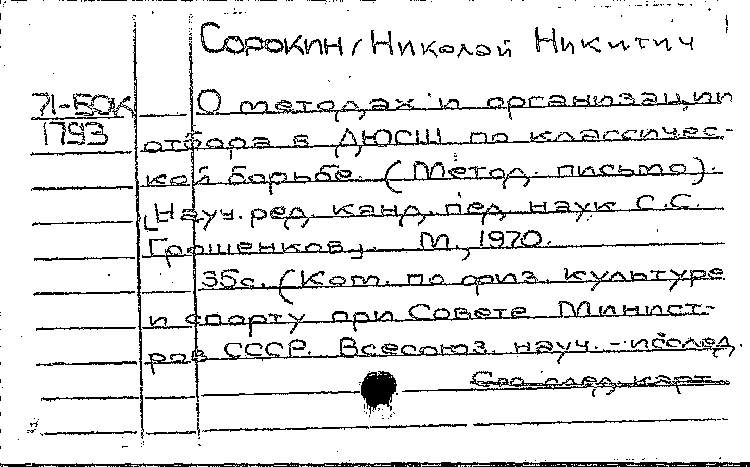 Сорокин, Николай Никитич
71-БОК О методах и организации
1793 отбора в ДЮСШ по классичес-
кой борьбе. (Метод. письмо).
[Науч. ред. канд. пед. наук С.С.
Грошенкову. М., 1970.
35с. (Ком. по физ. культуре
и спорту при Совете Минист-
ров СССР. Всесоюз. науч.-исслед.
См. след. карт.